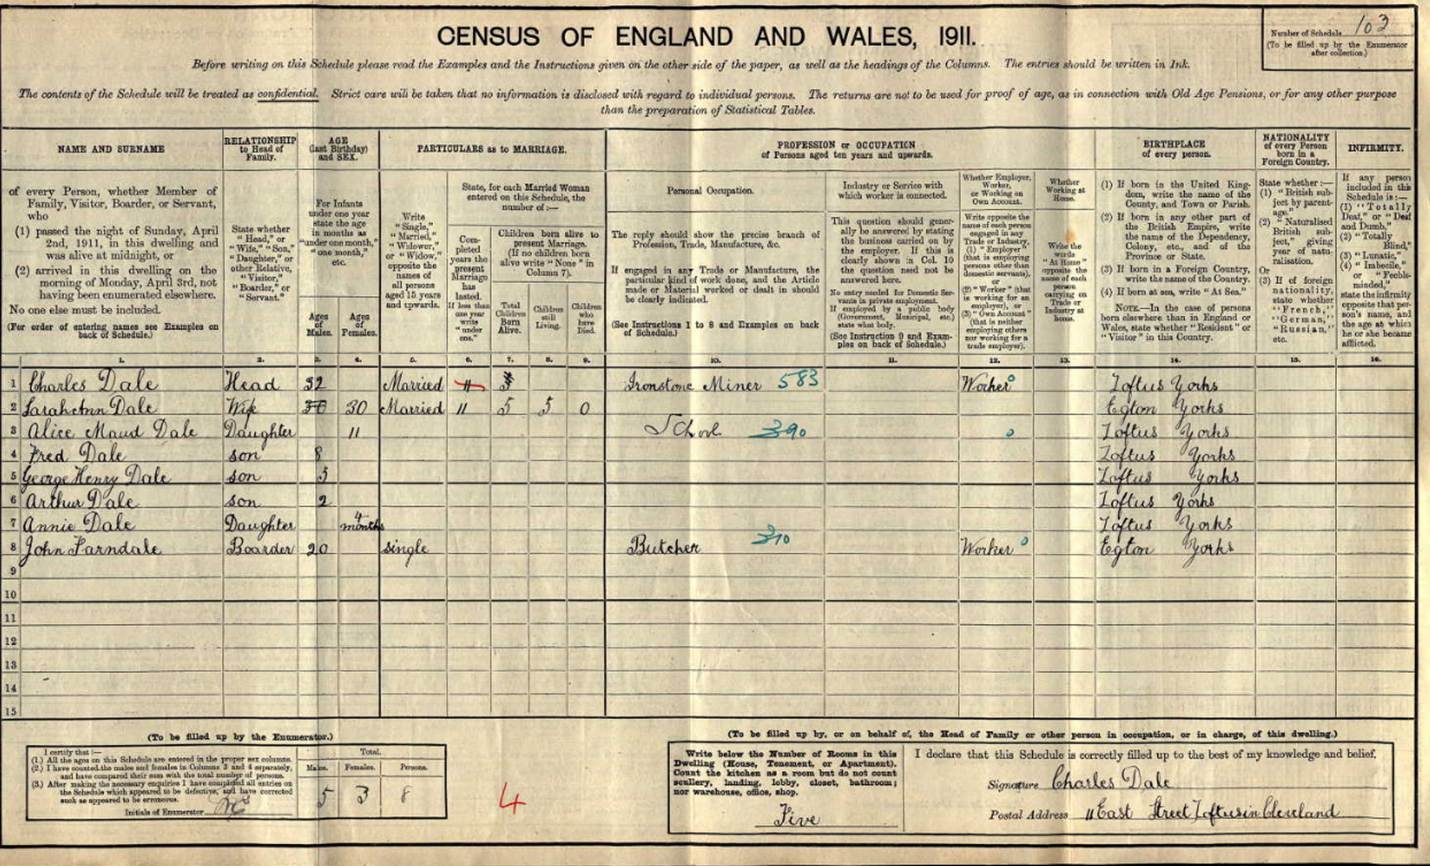 CENSUS OF ENGLAND AND WALES, 1911.
Number of Schedule 103
(To be filled up by the Enumerator
after collection.)
Before writing on this Schedule please read the Examples and the Instructions given on the other side of the paper, as well as the headings of the Columns. The entries should be written in Ink.
The contents of the Schedule will be treated as confidential. Strict care will be taken that no information is disclosed with regard to individual persons. The returns are not to be used for proof of age, as in connection with Old Age Pensions, or for any other purpose
than the preparation of Statistical Tables.
NAME AND SURNAME
of every Person, whether Member of
Family, Visitor, Boarder, or Servant,
who
(1) passed the night of Sunday, April
2nd, 1911, in this dwelling and
was alive at midnight, or
(2) arrived in this dwelling on the
morning of Monday, April 3rd, not
having been enumerated elsewhere.
No one else must be included.
(For order of entering names see Examples on
back of Schedule.)
RELATIONSHIP
to Head of
Family.
State whether
"Head," or
"Wife," "Son,"
"Daughter," or
other Relative,
"Visitor,"
"Boarder," or
"Servant."
AGE
(last Birthday)
and SEX.
For Infants
under one year
state the age
in months as
"under one month,"
"one month,"
etc.
Ages
of
Males.
Ages
of
Females.
PARTICULARS as to MARRIAGE.
Write
"Single,"
"Married,"
"Widower,"
or "Widow,"
opposite the
names of
all persons
aged 15 years
and upwards.
State, for each Married Woman
entered on this Schedule, the
number of:—
Com-
pleted
years the
present
Marriage
has
lasted.
If less than
one year
write
"under
one."
Children born alive to
present Marriage.
(If no children born
alive write "None" in
Column 7).
Total
Children
Born
Alive.
Children
still
Living.
Children
who
have
Died.
PROFESSION or OCCUPATION
of Persons aged ten years and upwards.
Personal Occupation.
The reply should show the precise branch of
Profession, Trade, Manufacture, &c.
If engaged in any Trade or Manufacture, the
particular kind of work done, and the Article
made or Material worked or dealt in should
be clearly indicated.
(See Instructions 1 to 8 and Examples on back
of Schedule.)
Industry or Service with
which worker is connected.
This question should gener-
ally be answered by stating
the business carried on by
the employer. If this is
clearly shown in Col. 10
the question need not be
answered here.
No entry needed for Domestic Ser-
vants in private employment.
If employed by a public body
(Government, Municipal, etc.)
state what body.
(See Instruction 9 and Exam-
ples on back of Schedule.)
Whether Employer,
Worker,
or Working on
Own Account.
Write opposite the
name of each person
engaged in any
Trade or Industry,
(1) "Employer"
(that is employing
persons other than
domestic servants),
or
(2) "Worker" (that
is working for an
employer), or
(3) "Own Account"
(that is neither
employing others
nor working for a
trade employer).
Whether
Working at
Home.
Write the
words
"At Home"
opposite the
name of each
person
carrying on
Trade or
Industry at
home.
BIRTHPLACE
of every person.
(1) If born in the United King-
dom, write the name of the
County, and Town or Parish.
(2) If born in any other part of
the British Empire, write
the name of the Dependency,
Colony, etc., and of the
Province or State.
(3) If born in a Foreign Country,
write the name of the Country.
(4) If born at sea, write "At Sea."
NOTE.—In the case of persons
born elsewhere than in England or
Wales, state whether "Resident" or
"Visitor" in this Country.
NATIONALITY
of every Person
born in a
Foreign Country.
State whether:—
(1) "British sub-
ject by parent-
age."
(2) "Naturalised
British sub-
ject," giving
year of natu-
ralisation.
Or
(3) If of foreign
nationality,
state whether
"French,"
"German,"
"Russian,"
etc.
INFIRMITY.
If any person
included in this
Schedule is:—
(1) "Totally
Deaf," or "Deaf
and Dumb,"
(2) "Totally
Blind,"
(3) "Lunatic,"
(4) "Imbecile,"
or "Feeble-
minded,"
state the infirmity
opposite that per-
son's name, and
the age at which
he or she became
afflicted.
1. 2. 3. 4. 5. 6. 7. 8. 9. 10. 11. 12. 13. 14. 15. 16.
1 Charles Dale Head 32 Married 11 5 Ironstone Miner 583 Worker Loftus Yorks
2 Sarah Ann Dale Wife 30 30 Married 11 5 5 0 Egton Yorks
3 Alice Maud Dale Daughter 11 School 390 Loftus Yorks
4 Fred Dale son 8 Loftus Yorks
5 George Henry Dale son 5 Loftus Yorks
6 Arthur Dale son 2 Loftus Yorks
7 Annie Dale Daughter 4 months Loftus Yorks
8 John Farndale Boarder 20 single Butcher 310 Worker Egton Yorks
9
10
11
12
13
14
15
(To be filled up by the Enumerator.)
I certify that:—
(1.) All the ages on this Schedule are entered in the proper sex columns.
(2.) I have counted the males and females in Columns 3 and 4 separately,
and have compared their sum with the total number of persons.
(3.) After making the necessary enquiries I have completed all entries on
the Schedule which appeared to be defective, and have corrected
such as appeared to be erroneous.
Initials of Enumerator
Total.
Males. Females. Persons.
5 3 8
4
(To be filled up by, or on behalf of, the Head of Family or other person in occupation, or in charge, of this dwelling.)
Write below the Number of Rooms in this
Dwelling (House, Tenement, or Apartment).
Count the kitchen as a room but do not count
scullery, landing, lobby, closet, bathroom;
nor warehouse, office, shop.
Five
I declare that this Schedule is correctly filled up to the best of my knowledge and belief.
Signature Charles Dale
Postal Address 11 East Street Loftus in Cleveland